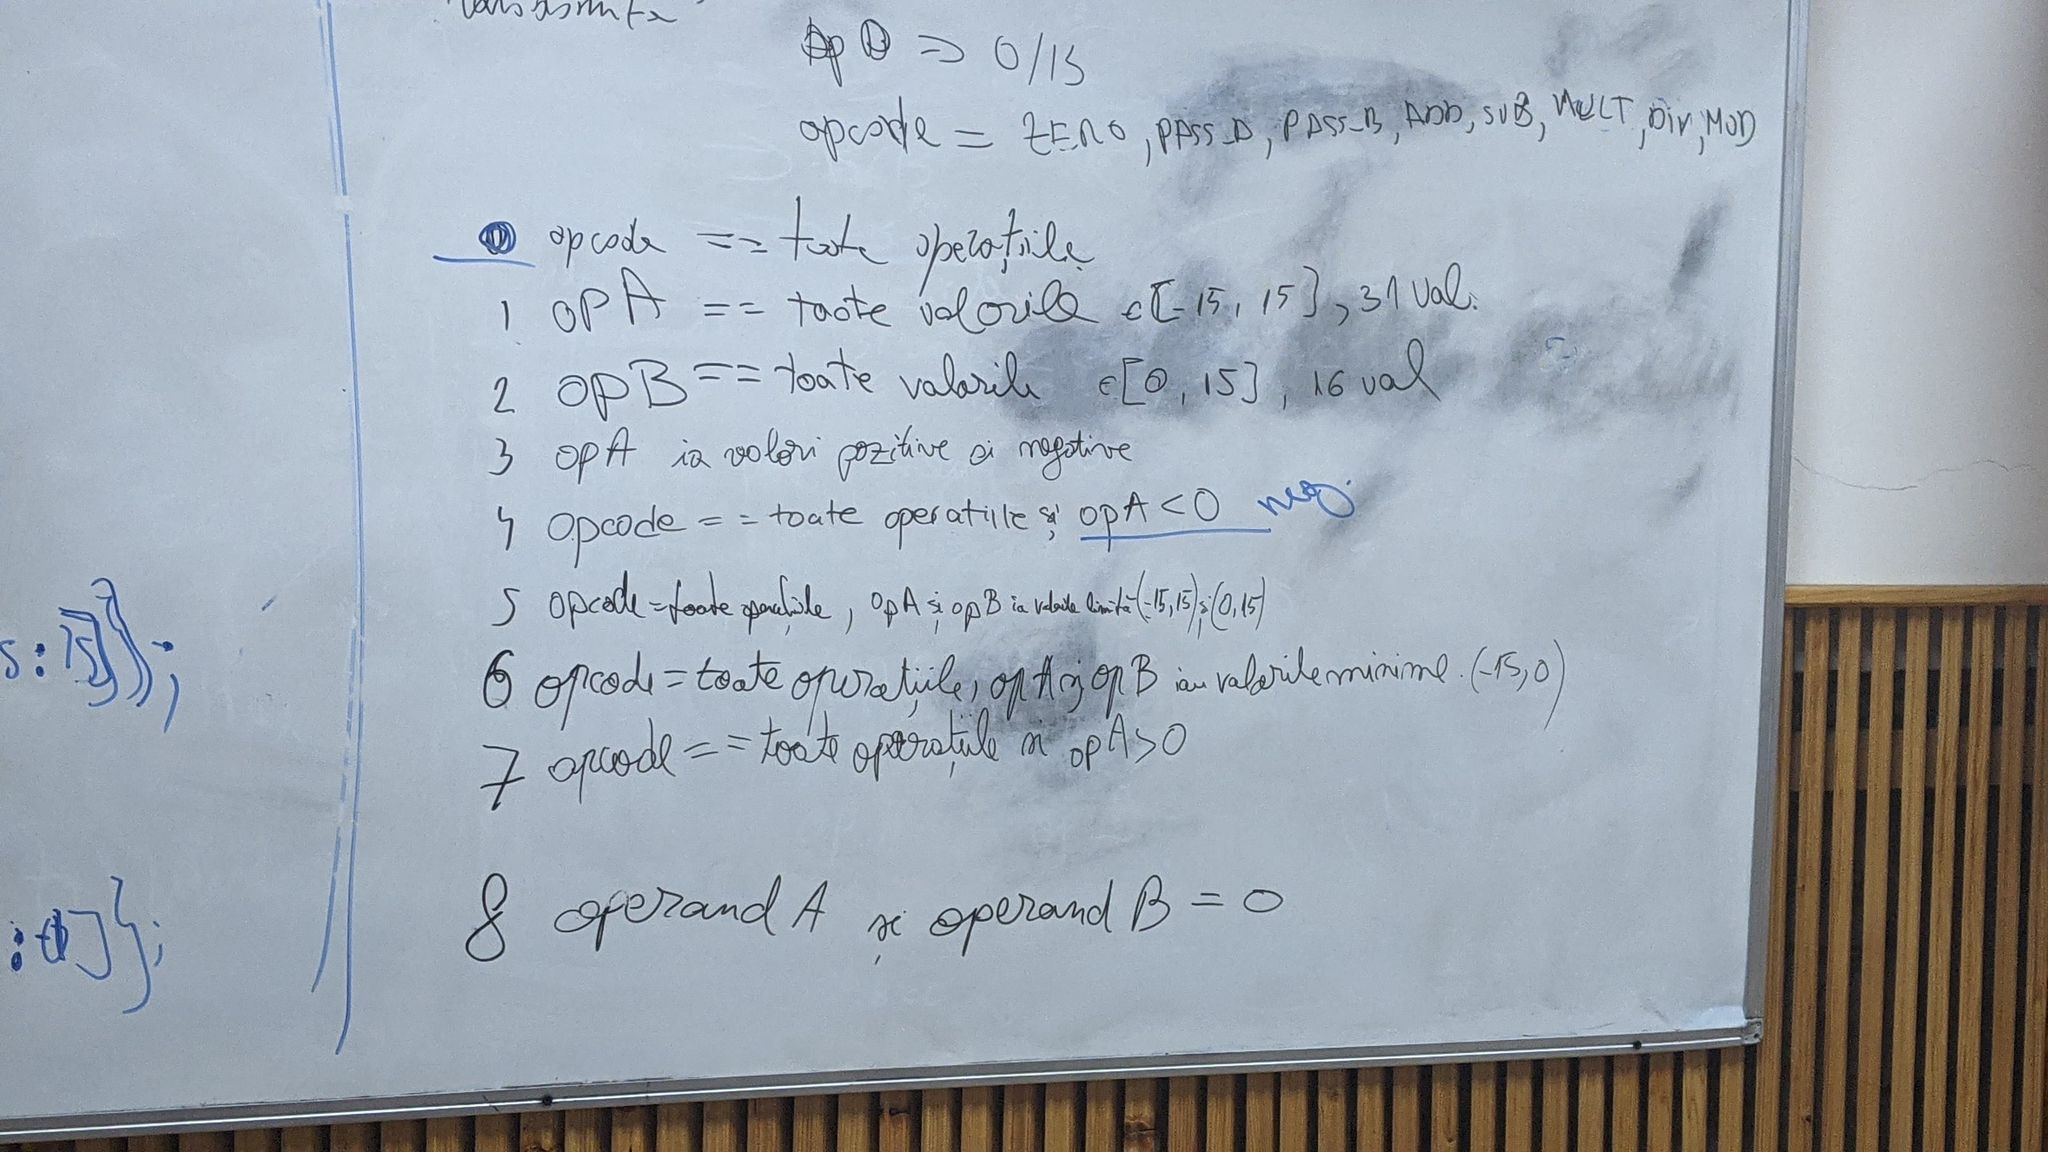 op => 0/15
opcode = ZERO, PASS_A, PASS_B, ADD, SUB, MULT, DIV, MOD
0 opcode == toate operațiile
1 opA == toate valorile ∈ [-15, 15], 31 val.
2 opB == toate valorile ∈ [0, 15], 16 val
3 opA ia valori pozitive si negative
4 opcode == toate operatiile și opA < 0 neg.
5 opcode = toate operațiile, opA și opB ia valorile limită (-15, 15) și (0, 15)
6 opcode = toate operațiile, opA și opB iau valorile minime. (-15, 0)
7 opcode == toate operațiile si opA > 0
8 operand A și operand B = 0
s : 15]}};
: 0]};